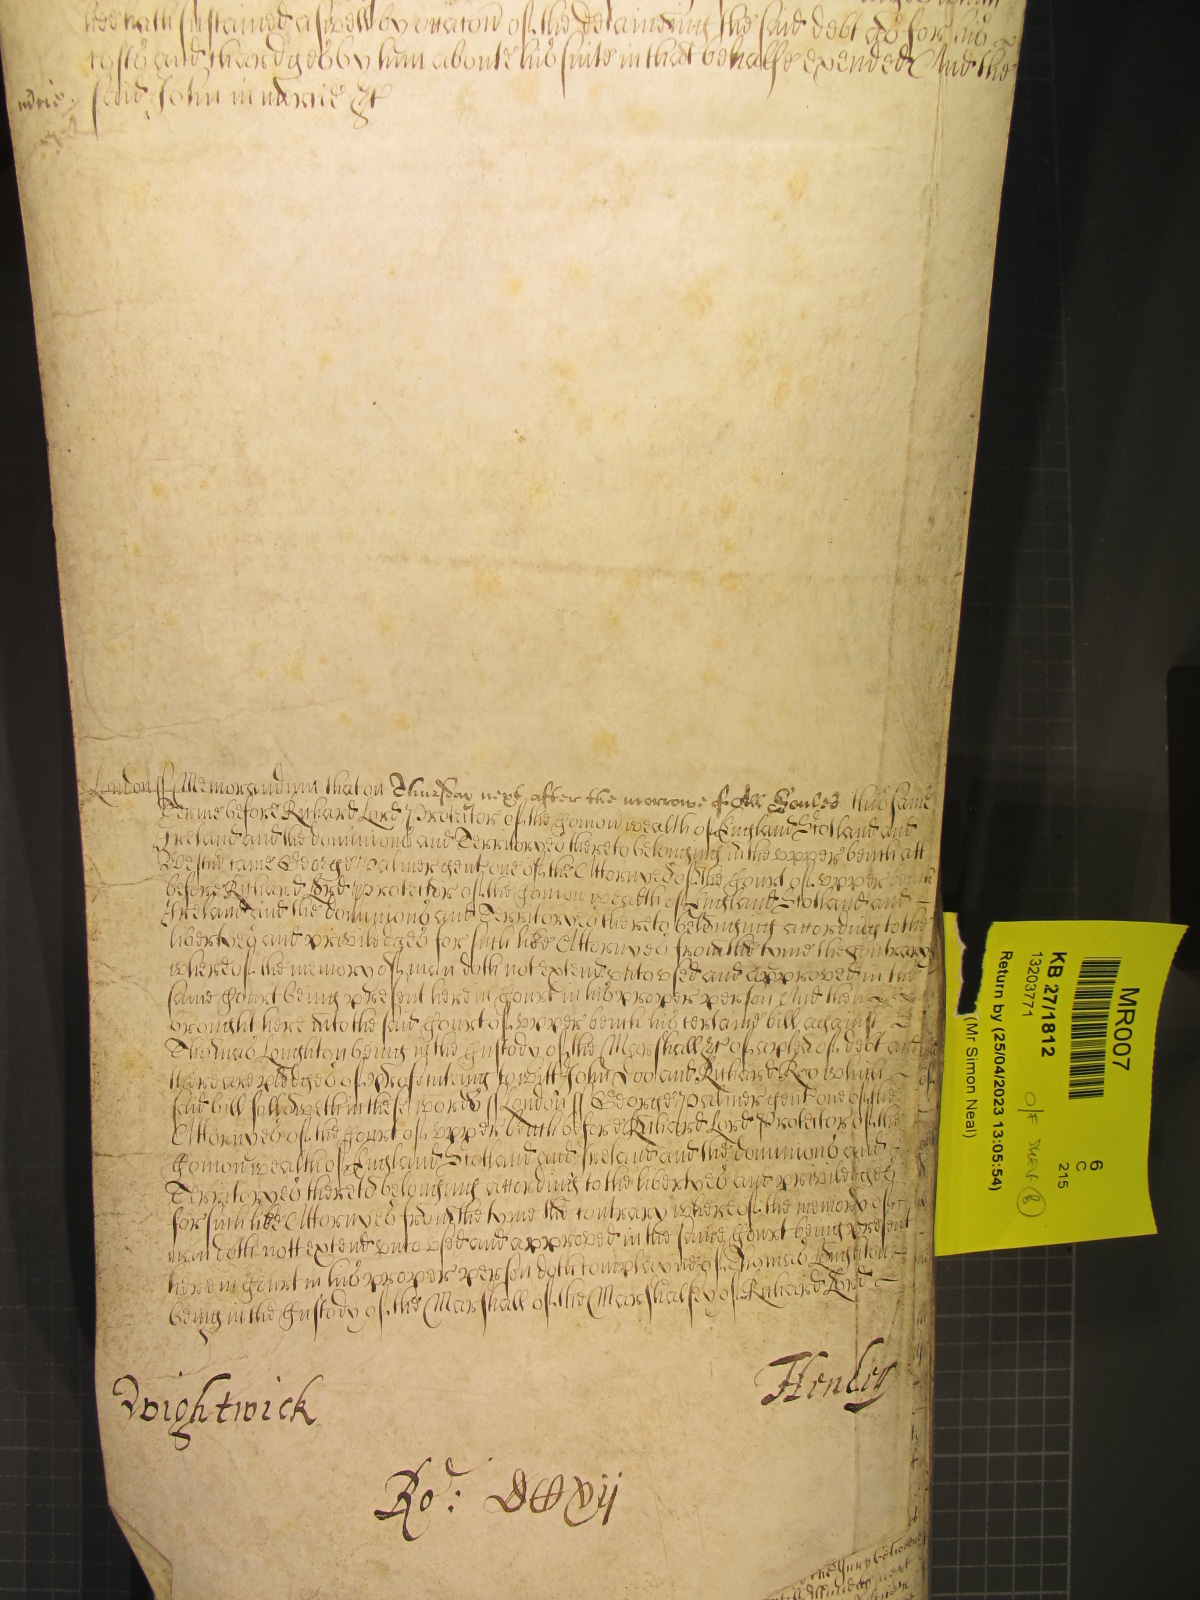 hee hath susteined aswell by occacon of the detaineing the said debt as for his
costs and chardges by him aboute his suite in that behalfe expended And the
said John in mercie &c
mercie
London ss Memorandum that on Thursday next after the morrowe of All Soules this same
Terme before Richard Lord Protector of the Comonwealth of England Scotland and
Ireland and the dominions and Territoryes thereto belonging in the upper bench att
Westm came George Palmer gent one of the Attornyes of the Court of upper bench
before Richard Lord Protector of the Comonwealth of England Scotland and
Ireland and the dominions and Territoryes thereto belonging according to the
libertyes and priviledges for such like Attornyes from the tyme the contrary
whereof the memory of man doth not extend unto used and approved in the
same Court being present here in Court in his proper person And then
brought here into the said Court of upper bench his certaine bill against
Thomas Loughton being in the Custody of the Marshall &c of a plea of debt and
there are pledges of prosecuteing to witt John Doo and Richard Roo which
said bill followeth in these words ss London ss George Palmer gent one of the
Attornyes of the Court of upper bench before Richard Lord Protector of the
Comonwealth of England Scotland and Ireland and the dominions and
Territoryes thereto belonging according to the libertyes and priviledges
for such like Attornyes from the tyme the contrary whereof the memory of
man doth nott extend unto used and approved in the same Court being present
here in Court in his proper person doth complayne of Thomas Loughton
being in the Custody of the Marshall of the Marshalsey of Richard Lord
Wightwick
Henley
Ro: DCCXVij
the Jury
MR007
6
C
215
KB 27/1812
13203771
Return by (25/04/2023 13:05:54)
(Mr Simon Neal)
O/F